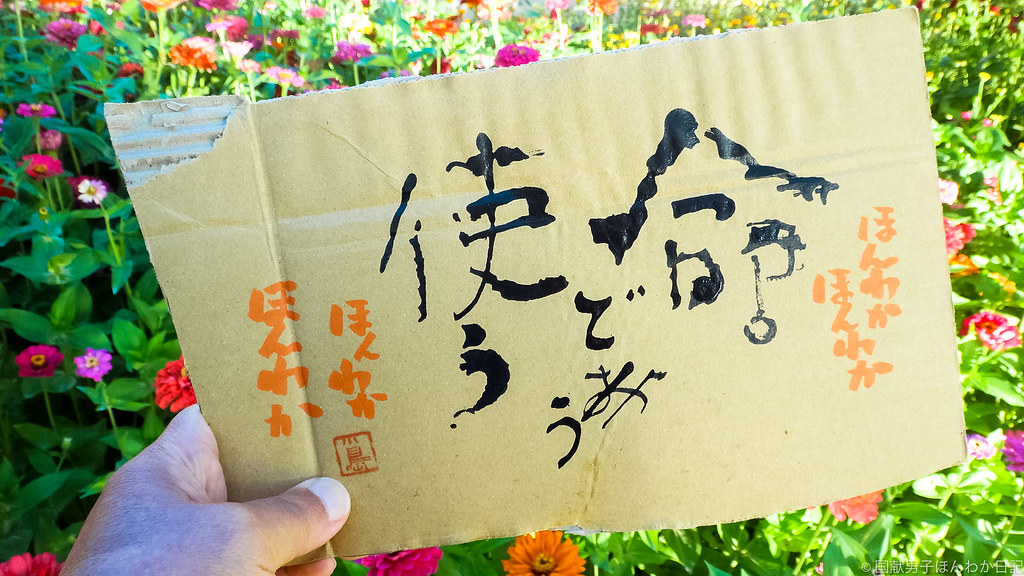 ほんわか
ほんわか
命
であう
使う
ほんわか
ほんわか
©国献男子ほんわか日記